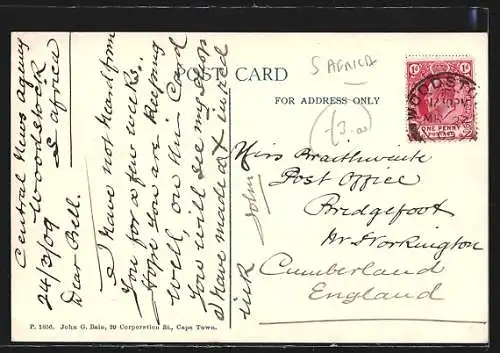 POST CARD
FOR ADDRESS ONLY
S AFRICA
(3.00)
1d 1d
ONE PENNY
WOODSTOCK
12 30 PM
Central News agency
Woodstock
S africa
24/3/09
Dear Bell.
I have not heard from
you for a few weeks..
Hope you are keeping
well, on this Card
you will see my shop
I have made a + in red
ink
John
Miss Braithwaite
Post Office
Bridgefoot
Nr Workington
Cumberland
England
P. 1856. John G. Bain, 20 Corporation St., Cape Town.